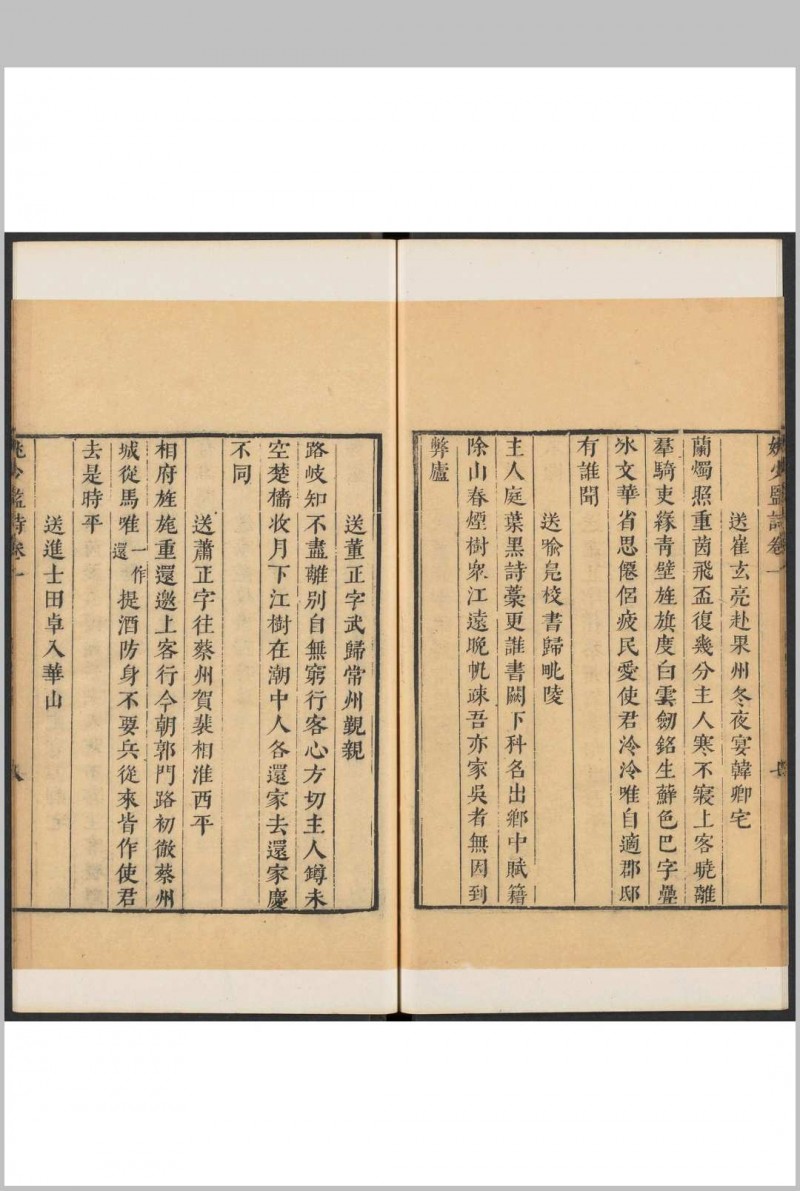 姚少監詩卷一
送崔玄亮赴果州冬夜宴韓卿宅
蘭燭照重茵飛盃復幾分主人寒不寢上客曉離
羣騎吏緣青壁旌旗度白雲劒銘生蘚色巴字疊
氷文華省思僊侶疲民愛使君泠泠唯自適郡邸
有誰聞
送喻鳧校書歸毗陵
主人庭葉黑詩藁更誰書闕下科名出鄉中賦籍
除山春煙樹衆江遠晚帆疎吾亦家吳者無因到
弊廬
送董正字武歸常州覲親
路岐知不盡離别自無窮行客心方切主人罇未
空楚檣收月下江樹在潮中人各還家去還家慶
不同
送蕭正字往蔡州賀裴相淮西平
相府旌旄重還邀上客行今朝郭門路初徹蔡州
城從馬唯一作還提酒防身不要兵從來皆作使君
去是時平
送進士田卓入華山
姚少監詩卷一
八